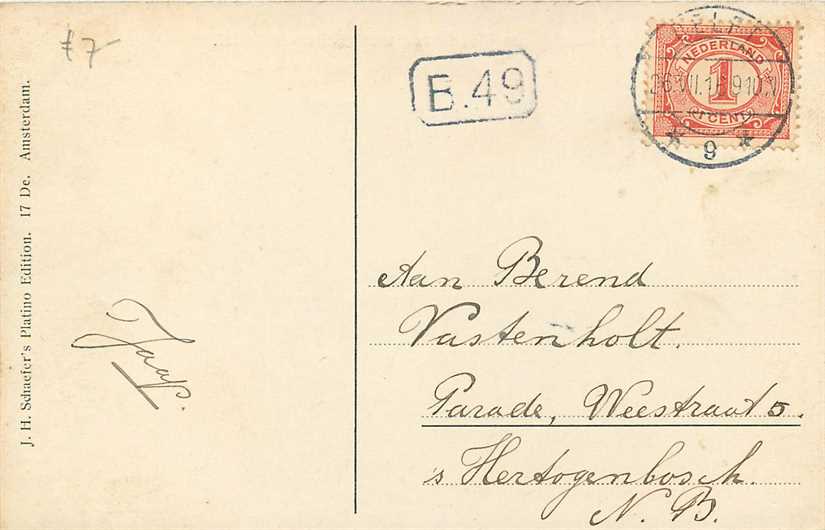 f 7-
B.49
DELFT
NEDERLAND
1
CENT
9
Aan Berend
Vastenholt.
Parade, Weestraat 5.
's Hertogenbosch.
N.B.
Jaap.
J. H. Schaefer's Platino Edition. 17 De. Amsterdam.